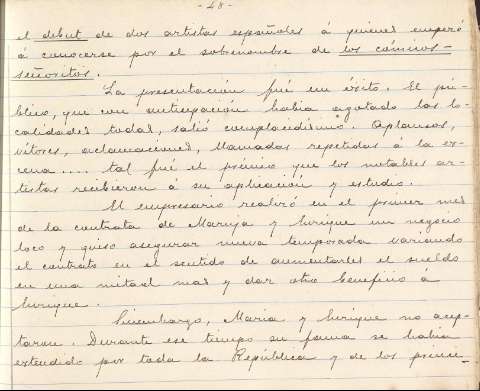 - 48 -
el debut de dos artistas españoles á quienes empezó
á conocerse por el sobrenombre de los caminos-
señoritos.
La presentación fué un éxito. El pú-
blico, que con anticipación había agotado las lo-
calidades todas, salió complacidísimo. Aplausos,
vítores, aclamaciones, llamadas repetidas á la es-
cena.... tal fué el prémio que los notables ar-
tistas recibieron á su aplicación y estudio.
El empresario realizó en el primer mes
de la contrata de Maruja y Enrique un negocio
loco y quiso asegurar nueva temporada variando
el contrato en el sentido de aumentarles el sueldo
en una mitad mas y dar otro beneficio á
Enrique.
Sinembargo, Maria y Enrique no acep-
taron. Durante ese tiempo su fama se habia
extendido por toda la República y de los prince-